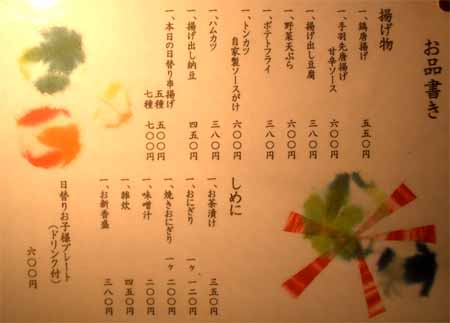 お品書き
揚げ物
一、鶏唐揚げ 五五〇円
一、手羽先唐揚げ
甘辛ソース 六〇〇円
一、揚げ出し豆腐 三八〇円
一、野菜天ぷら 六〇〇円
一、ポテトフライ 三八〇円
一、トンカツ
自家製ソースがけ 六〇〇円
一、ハムカツ 三八〇円
一、揚げ出し納豆 四五〇円
一、本日の日替り串揚げ
五種 五〇〇円
七種 七〇〇円
しめに
一、お茶漬け 三五〇円
一、おにぎり 一ヶ 一二〇円
一、焼きおにぎり 一ヶ 二〇〇円
一、味噌汁 二〇〇円
一、雑炊 四五〇円
一、お新香盛 三八〇円
日替りお子様プレート
(ドリンク付) 六〇〇円